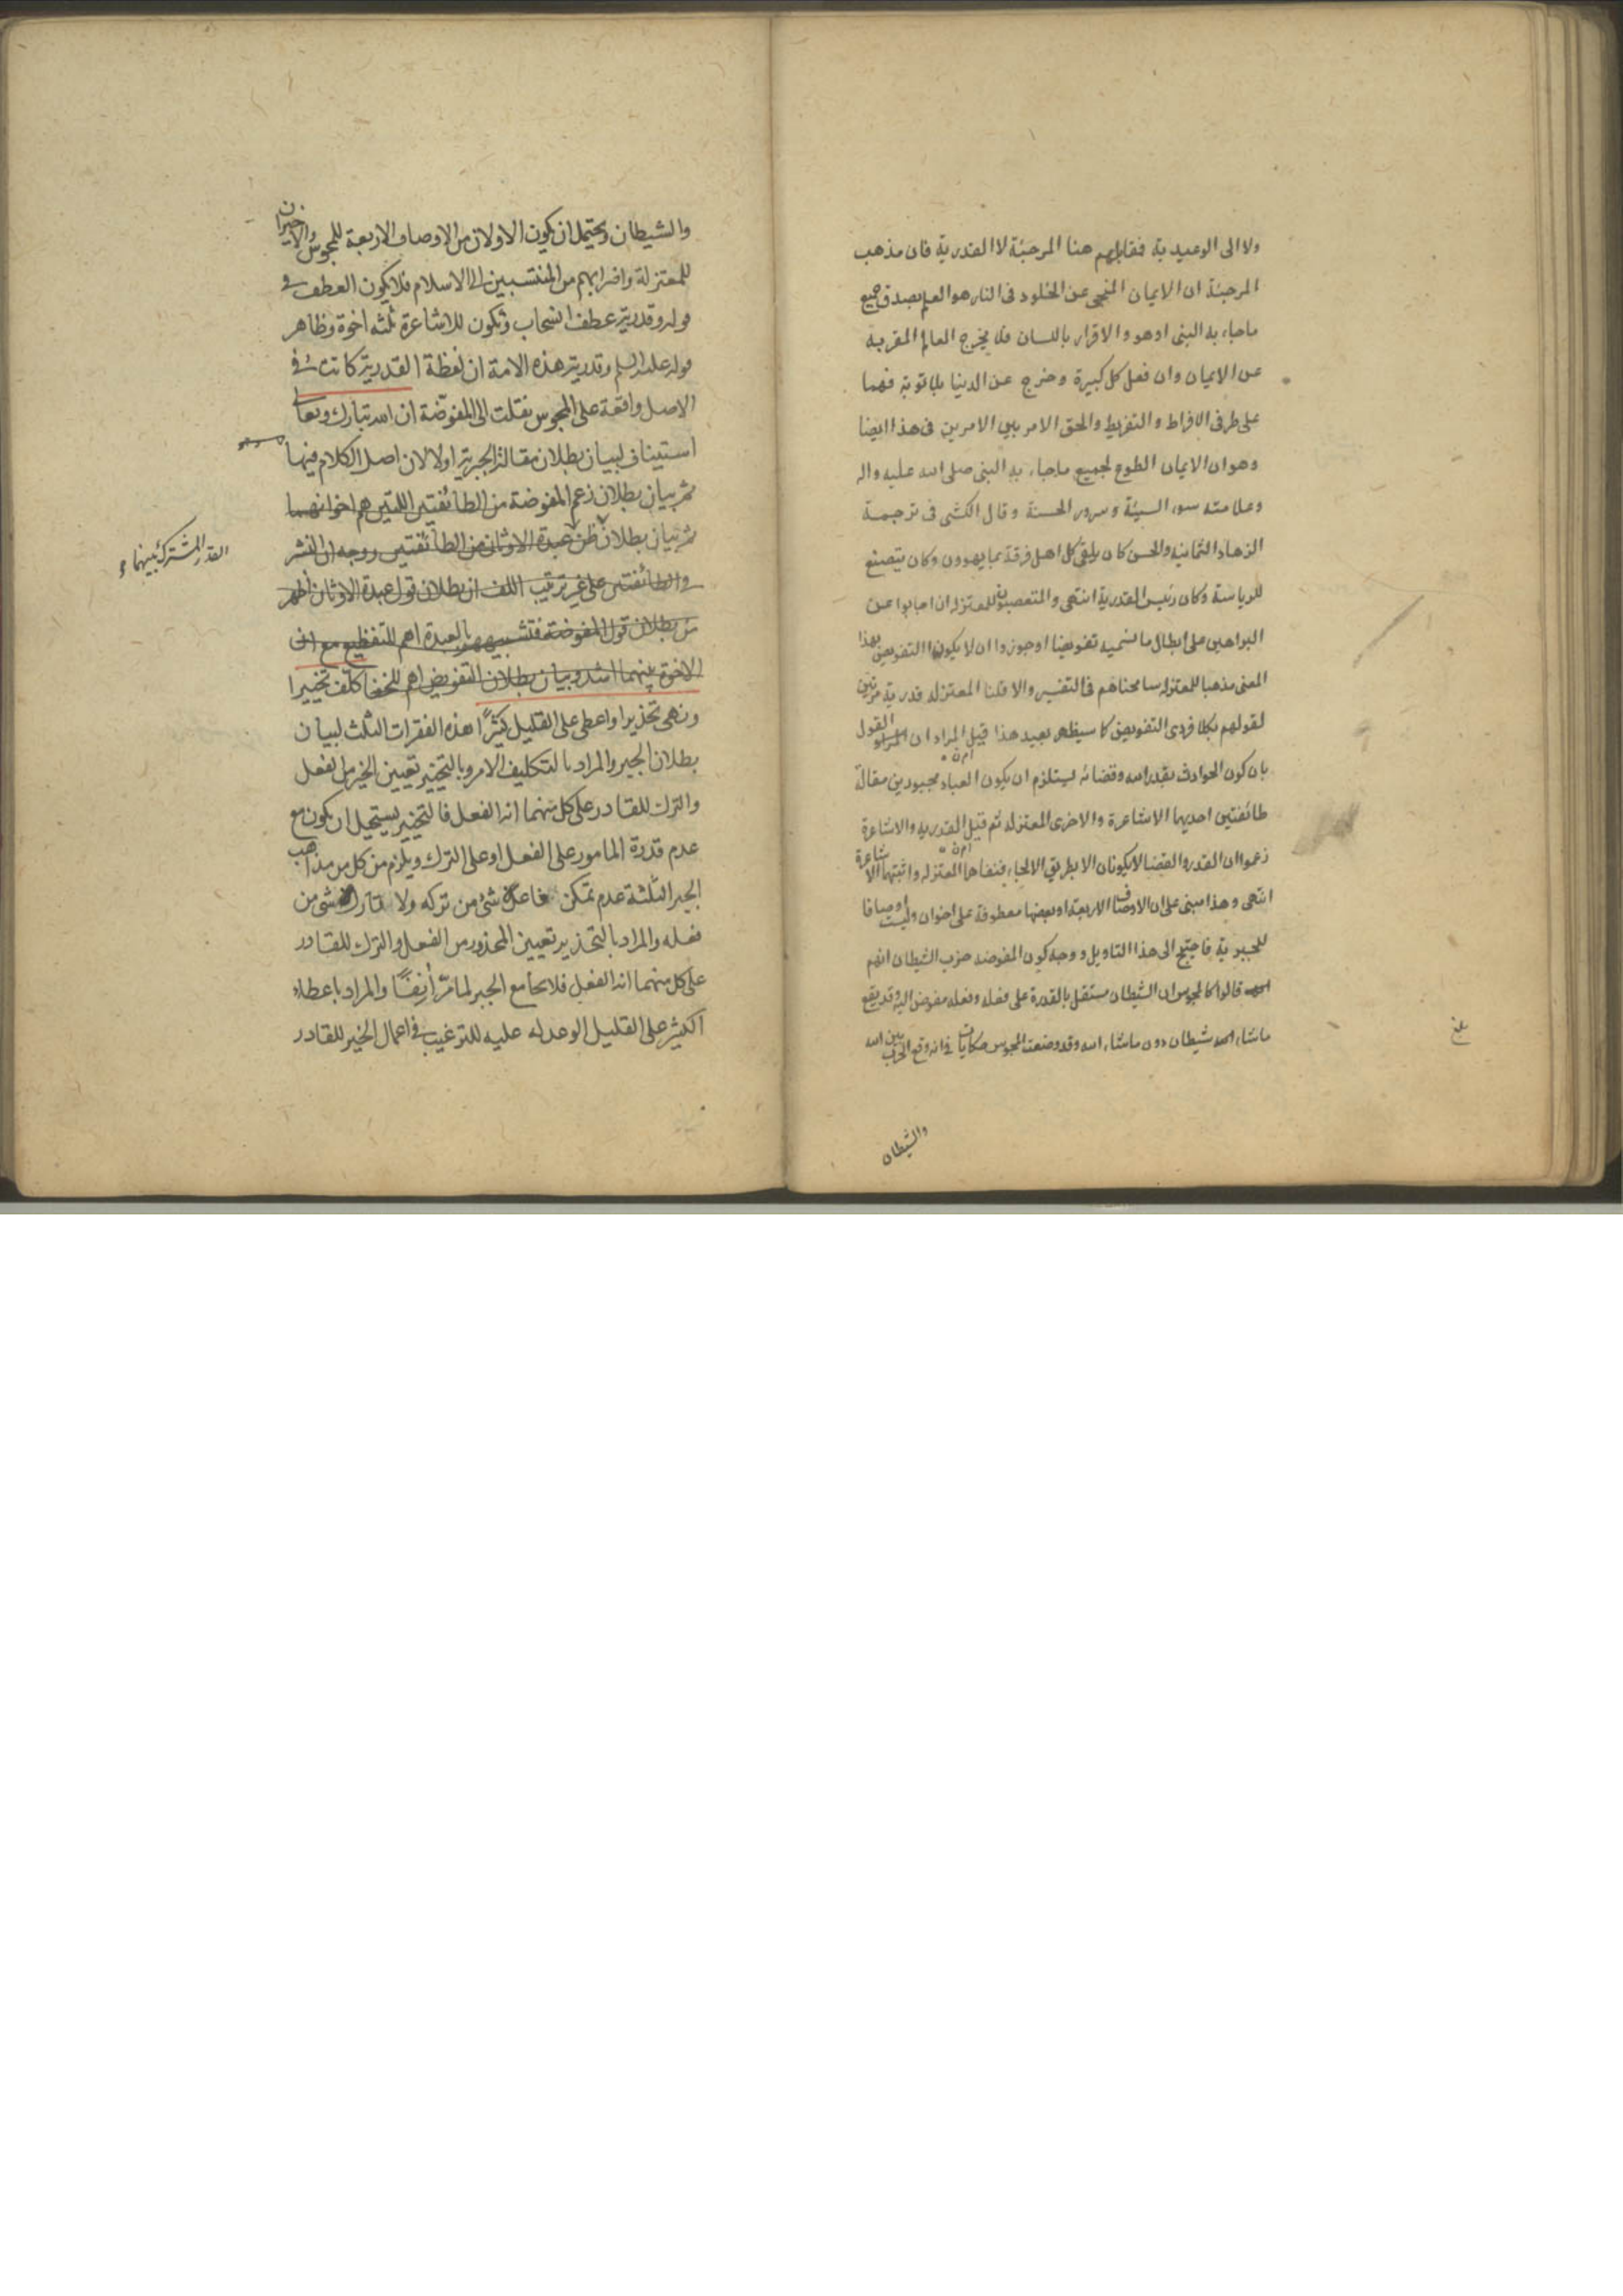 ولا الى الوعيدية فمقابلهم هنا المرجئة لا القدرية فان مذهب
المرجئة ان الايمان المنجى عن الخلود فى النار هو العلم بصدق جميع
ماجاء به النبى اوهو والاقرار باللسان فلا يخرج العالم المقر به
عن الايمان وان فعل كل كبيرة وخرج عن الدنيا بلا توبة فهما
على طرفى الافراط والتفريط والحق الامر بين الامرين فى هذا ايضا
وهو ان الايمان الطوع لجميع ماجاء به النبى صلى الله عليه واله
وعلامته سوء السيئة وسرور الحسنة وقال الكشى فى ترجمة
الزهاد الثمانية والحسن كان يلقى كل اهل فرقة بما يهوون وكان يتصنع
للرياسة وكان رئيس القدرية انتهى والمتعصبون للمعتزلة ان اجابوا عن
البراهين على ابطال ما نسميه تفويضا اوجوزوا ان لا يكون التفويض بهذا
المعنى مذهبا للمعتزلة سامحناهم فى التفسير والا قلنا المعتزلة قدرية مرتين
لقولهم بكلا فردى التفويض كما سيظهر بعيد هذا قيل المراد ان القول
بان كون الحوادث بقدر الله وقضائه يستلزم ان يكون العباد مجبورين مقالة
طائفتين احديهما الاشاعرة والاخرى المعتزلة ثم قيل القدرية والاشاعرة
زعموا ان القدر والقضا لا يكونان الا بطريق الالجاء فنفاهما المعتزلة واثبتهما الاشاعرة
انتهى وهذا مبنى على ان الاوصاف الاربعة او بعضها معطوفة على اخوان وليست اوصافا
للجبرية فاحتيج الى هذا التاويل ووجه كون المفوضة حزب الشيطان انهم
قالوا كالمجوس ان الشيطان مستقل بالقدرة على فعله وفعله مفوض اليه وقد يقع
ماشاء الشيطان دون ماشاء الله وقد وضعت المجوس حكايات فى انه وقع الحرب بين الله
والشيطان
والشيطان ويحتمل ان يكون الاولان من الاوصاف الاربعة للمجوس والاخيران
للمعتزلة واضرابهم من المنتسبين الى الاسلام فلا يكون العطف فى
قوله وقدرية عطف انسحاب وتكون للاشاعرة ثلثه اخوة وظاهر
قوله عليه السلم وقدرية هذه الامة ان لفظة القدرية كانت فى
الاصل واقعة على المجوس نقلت الى المفوضة ان الله تبارك وتعالى
استيناف لبيان بطلان مقالة الجبرية اولا لان اصل الكلام فيها
ثم بيان بطلان زعم المفوضة من الطائفتين اللتين هم اخوانهما
ثم بيان بطلان ظن عبدة الاوثان من الطائفتين ووجه ان النشر
فى الطائفتين على غير ترتيب اللف ان بطلان قول عبدة الاوثان اظهر
من بطلان قول المفوضة فتشبيههم بالعبدة اهم للتفظيع مع ان
الاخوة بينهما اشد وبيان بطلان التفويض اهم كلف تخييرا
القدر المشترك بينهما
ونهى تحذيرا واعطى على القليل كثيرًا هذه الفقرات الثلث لبيان
بطلان الجبر والمراد بالتكليف الامر وبالتخيير تعيين الخير من الفعل
والترك للقادر على كل منهما انه الفعل فالتخيير يستحيل ان يكون مع
عدم قدرة المامور على الفعل او على الترك ويلزم من كل من مذاهب
الجبر الثلثة عدم تمكن فاعل شئ من تركه ولا تارك شئ من
فعله والمراد بالتحذير تعيين المحذور من الفعل والترك للقادر
على كل منهما انه الفعل فلا يجامع الجبر لما مرّ أنِفًا والمراد باعطاء
الكثير على القليل الوعد له عليه للترغيب فى اعمال الخير للقادر